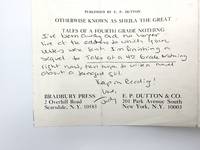 PUBLISHED BY E. P. DUTTON
OTHERWISE KNOWN AS SHEILA THE GREAT
TALES OF A FOURTH GRADE NOTHING
I've been away and no longer
live at the address to which your
letters were sent. I'm finishing a
sequel to Tales of a 4th grade Nothing
right now, then hope to write a novel
about a teenage girl.
Keep on Reading!
Love
Judy
BRADBURY PRESS
2 Overhill Road
Scarsdale, N.Y. 10583
E. P. DUTTON & CO.
201 Park Avenue South
New York, N.Y. 10003